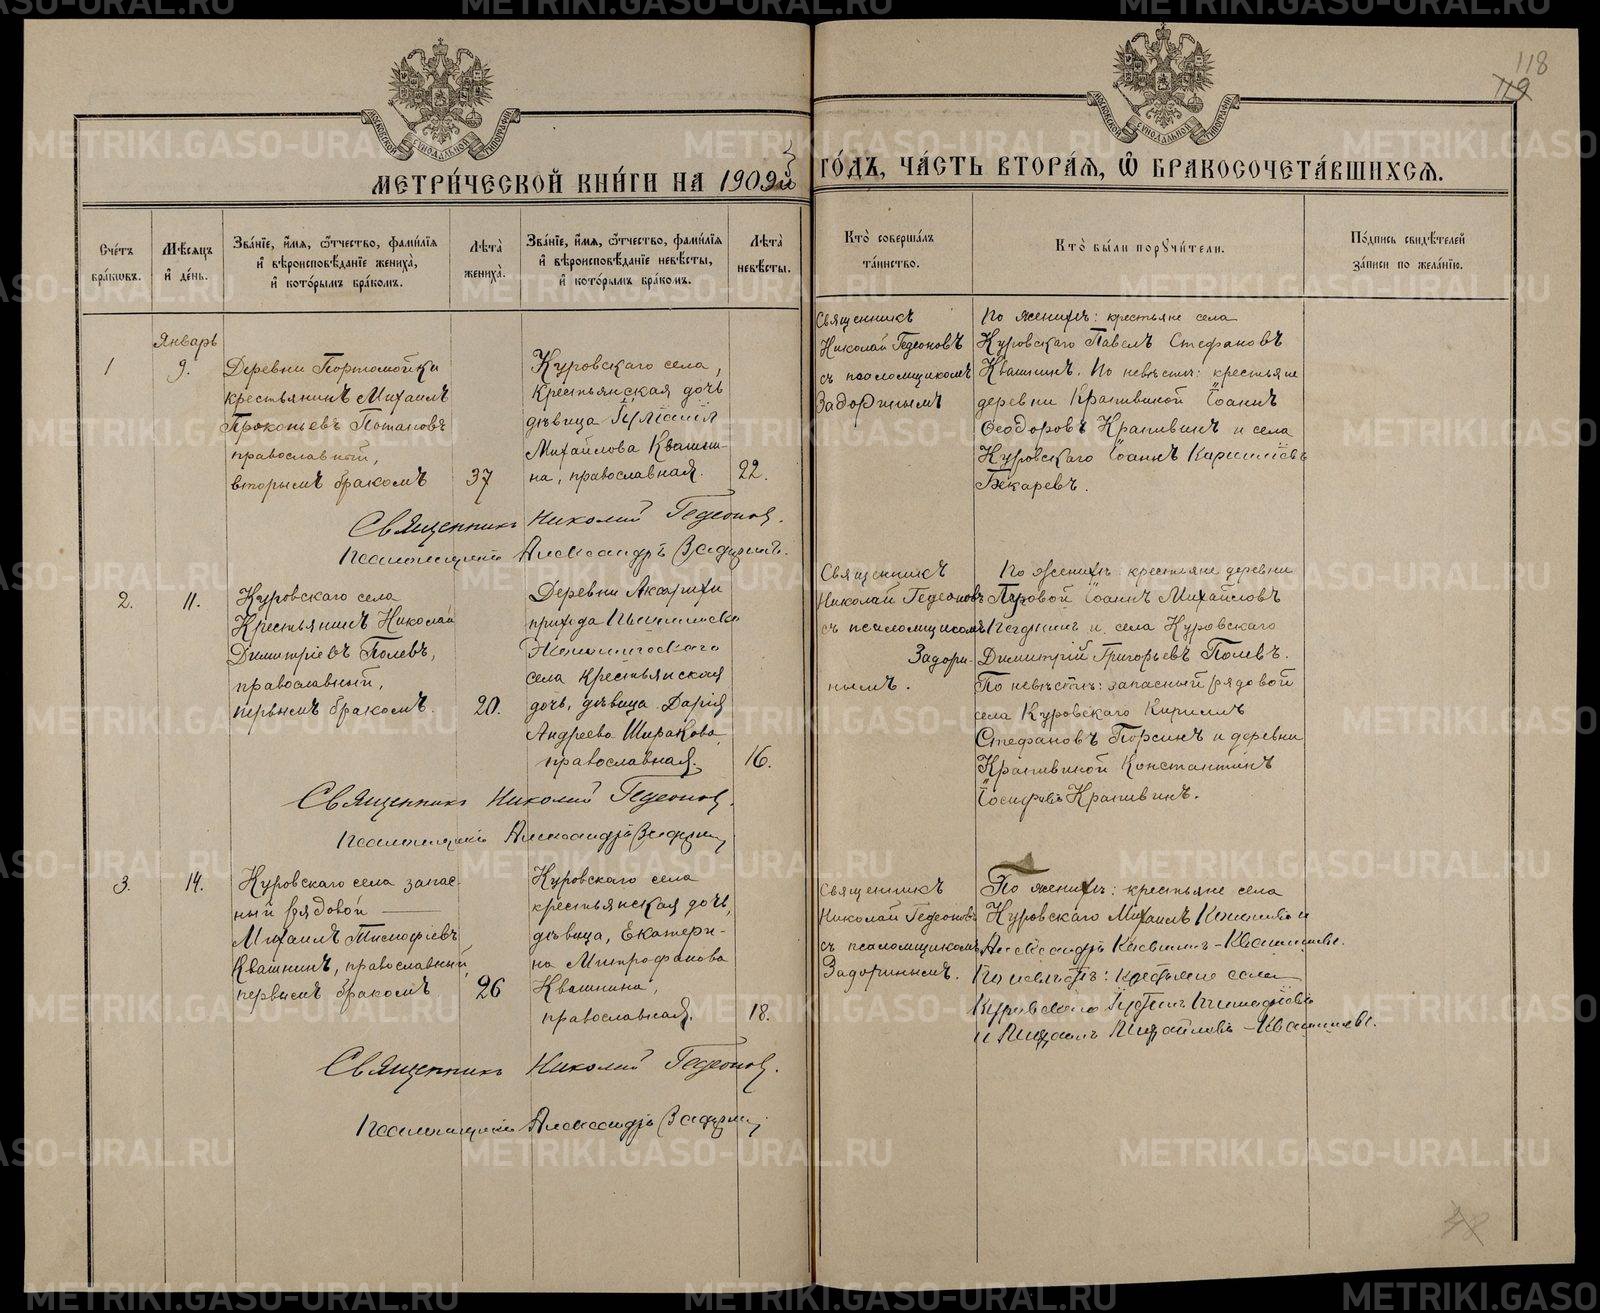 118
119
МОСКОВСКОЙ СѴНОДАЛЬНОЙ ТИПОГРАФІИ
МОСКОВСКОЙ СѴНОДАЛЬНОЙ ТИПОГРАФІИ
МЕТРИ́ЧЕСКОЙ КНИ́ГИ НА 1909й ГО́ДЪ, ЧА́СТЬ ВТОРА́Я, Ѽ БРАКОСОЧЕТА́ВШИХСѦ.
Сче́тъ бра́кѡвъ.
Мѣ́сѧцъ и҆ де́нь.
Зва́нїе, и҆́мѧ, ѻ҆́тчество, фами́лїѧ и҆ вѣроисповѣ́данїе жениха̀, и҆ кото́рымъ бра́комъ.
Лѣ́та жениха̀.
Зва́нїе, и҆́мѧ, ѻ҆́тчество, фами́лїѧ и҆ вѣроисповѣ́данїе невѣ́сты, и҆ кото́рымъ бра́комъ.
Лѣ́та невѣ́сты.
Кто̀ соверша́лъ та́инство.
Кто̀ бы́ли порꙋчи́тели.
По́дпись свидѣ́телей за́писи по жела́нїю.
1
Январь
9.
Деревни Портомойки
крестьянинъ Михаилъ
Прокопьевъ Потаповъ
православный,
вторымъ бракомъ
37
Куровскаго села,
Крестьянская дочь
дѣвица Іуліанія
Михайлова Квашни-
на, православная.
22.
Священникъ
Николай Гедеоновъ
съ псаломщикомъ
Задоринымъ
По женихѣ: крестьяне села
Куровскаго Павелъ Стефановъ
Квашнинъ. По невѣстѣ: крестьяне
деревни Крапивиной Іоаннъ
Ѳеодоровъ Крапивинъ и села
Куровскаго Іоаннъ
Бекаревъ.
Священникъ Николай Гедеоновъ.
Псаломщикъ Александръ Задоринъ.
2.
11.
Куровскаго села
Крестьянинъ Николай
Димитріевъ Полевъ,
православный,
первымъ бракомъ.
20.
Деревни
прихода
села крестьянская
дочь, дѣвица Дарія
Андреева Ширакова,
православная.
16.
Священникъ
Николай Гедеоновъ
съ псаломщикомъ
Задори-
нымъ.
По женихѣ: крестьяне деревни
Іоаннъ Михайловъ
и села Куровскаго
Димитрій Григорьевъ Полевъ.
По невѣстѣ: запасный рядовой
села Куровскаго Кириллъ
Стефановъ Порсинъ и деревни
Крапивиной Константинъ
Іосифовъ Крапивинъ.
Священникъ Николай Гедеоновъ.
Псаломщикъ Александръ Задоринъ
3.
14.
Куровскаго села запас-
ный рядовой
Михаилъ Тимоѳіевъ
Квашнинъ, православный,
первымъ бракомъ
26
Куровскаго села
крестьянская дочь,
дѣвица, Екатери-
на Митрофанова
Квашнина,
православная.
18.
Священникъ
Николай Гедеоновъ
съ псаломщикомъ
Задоринымъ.
По женихѣ: крестьяне села
Куровскаго Михаилъ
Александръ Квашнины.
По невѣстѣ: крестьяне села
Куровскаго
и Михаилъ Михайловъ Квашнины.
Священникъ Николай Гедеоновъ.
Псаломщикъ Александръ Задоринъ
METRIKI.GASO-URAL.RU